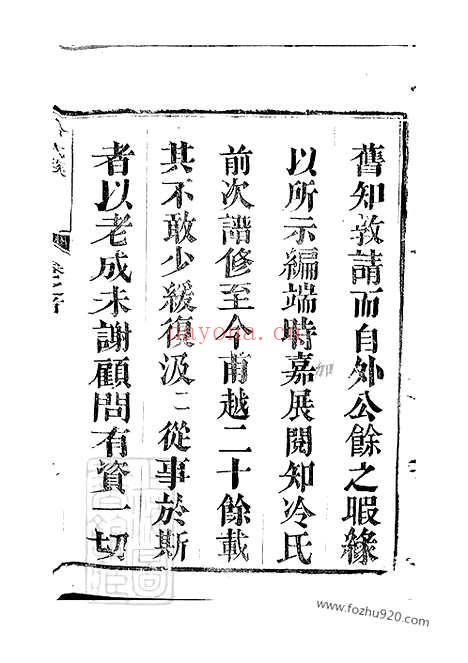 舊知敦請而自外公餘之暇緣
以所示編端時嘉展閱知冷氏
前次譜修至今甫越二十餘載
其不敢少緩復汲〻從事於斯
者以老成未謝顧問有資一切
卷之首
nayona.cn
www.fozhu920.com